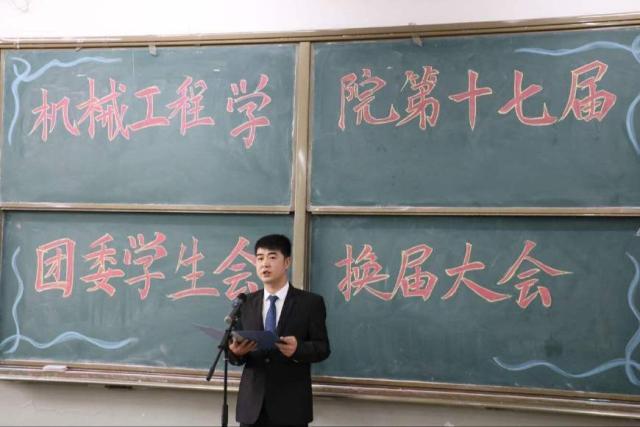 机械工程学院第十七届
团委学生会换届大会